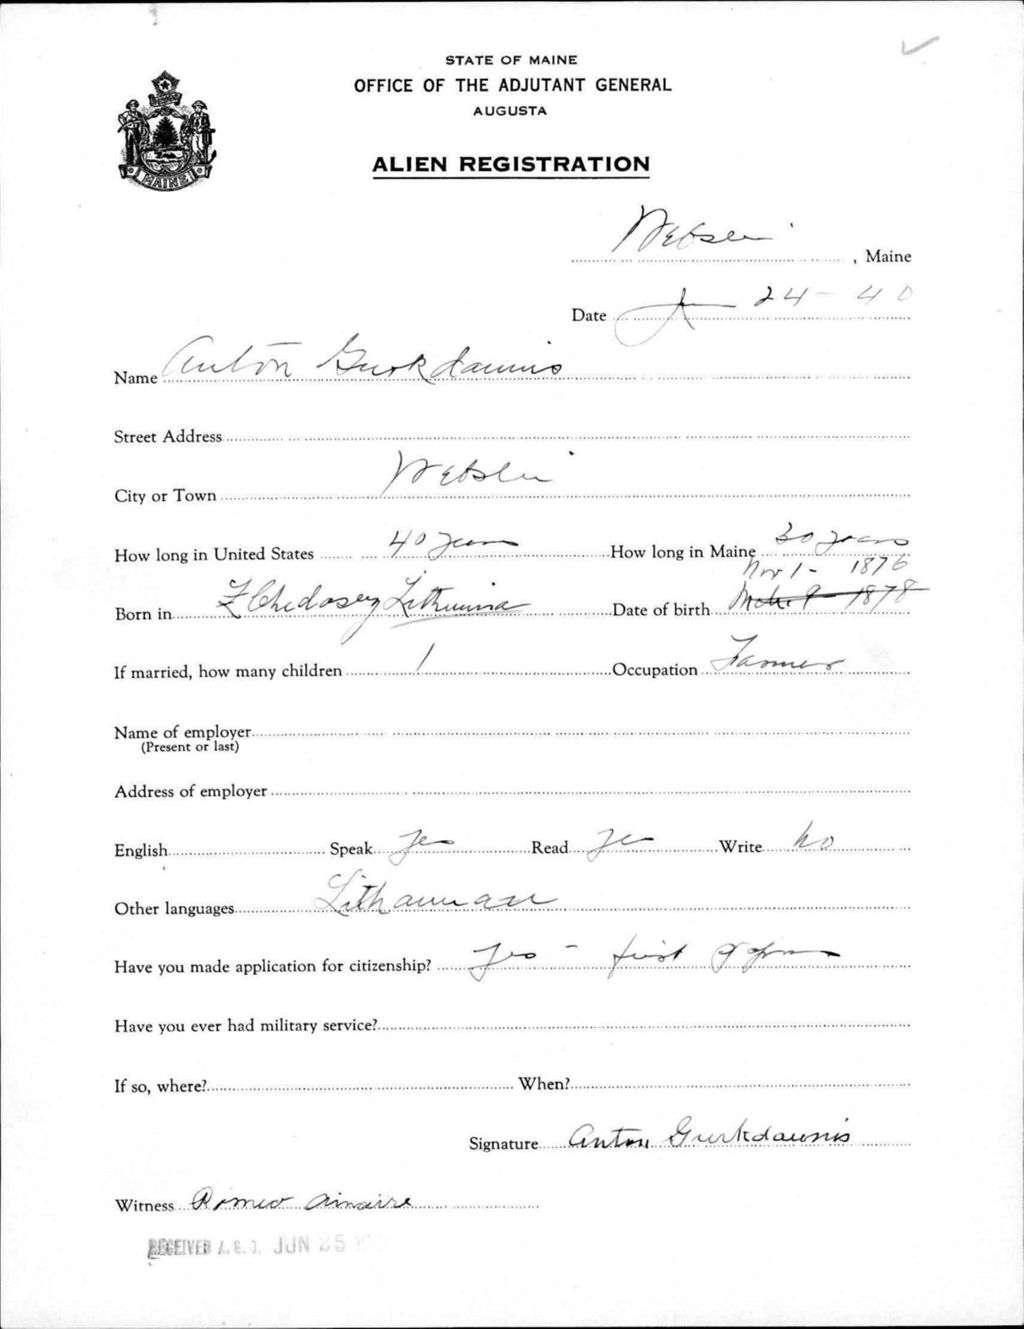 STATE OF MAINE
OFFICE OF THE ADJUTANT GENERAL
AUGUSTA
ALIEN REGISTRATION
MAINE
Webster, Maine
Date 24-40
Name Anton Gurkdaunis
Street Address
City or Town Webster
How long in United States 40 years How long in Maine 30 years
Nov 1 - 1876
Born in Lithuania Date of birth Mch. 9 - 1878
If married, how many children 1 Occupation Farmer
Name of employer
(Present or last)
Address of employer
English Speak yes Read yes Write no
Other languages Lithaunian
Have you made application for citizenship? yes - first papers
Have you ever had military service?
If so, where? When?
Signature Anton Gurkdaunis
Witness Romeo
RECEIVED A.G.O. JUN 25